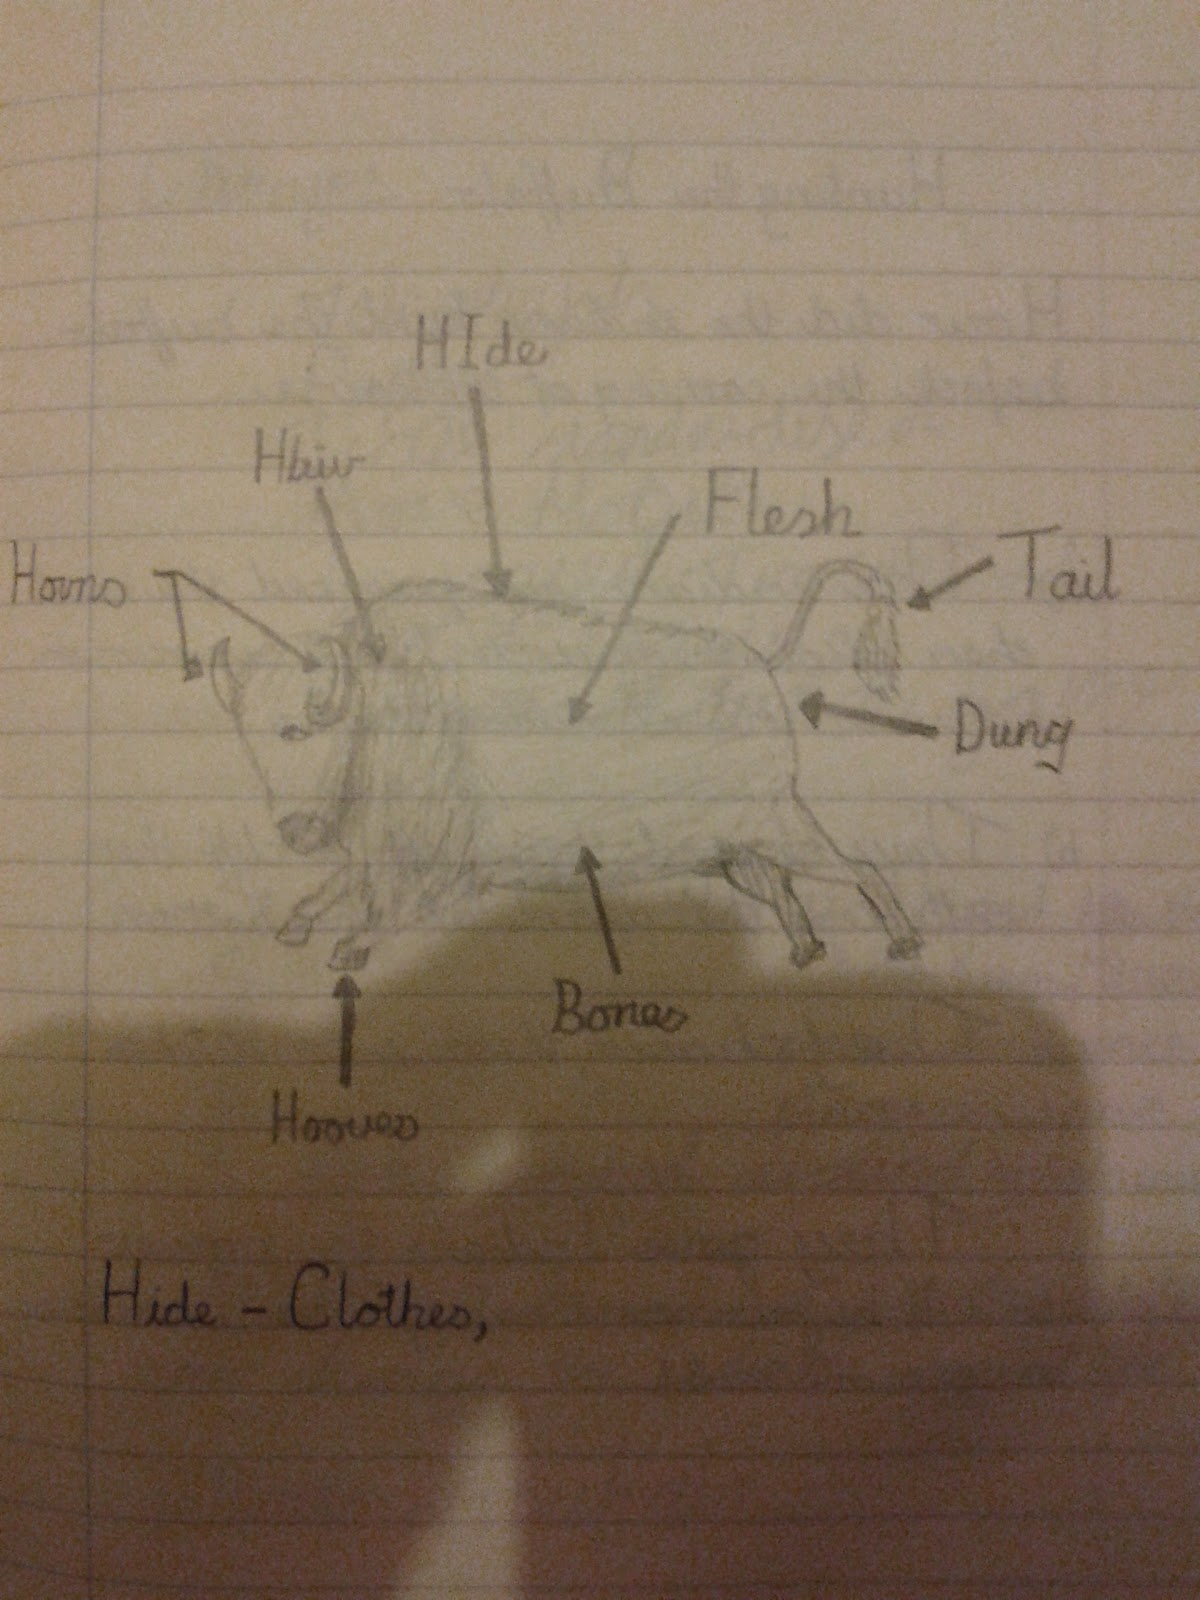 HIde
Hair
Flesh
Horns
Tail
Dung
Bones
Hooves
Hide - Clothes,